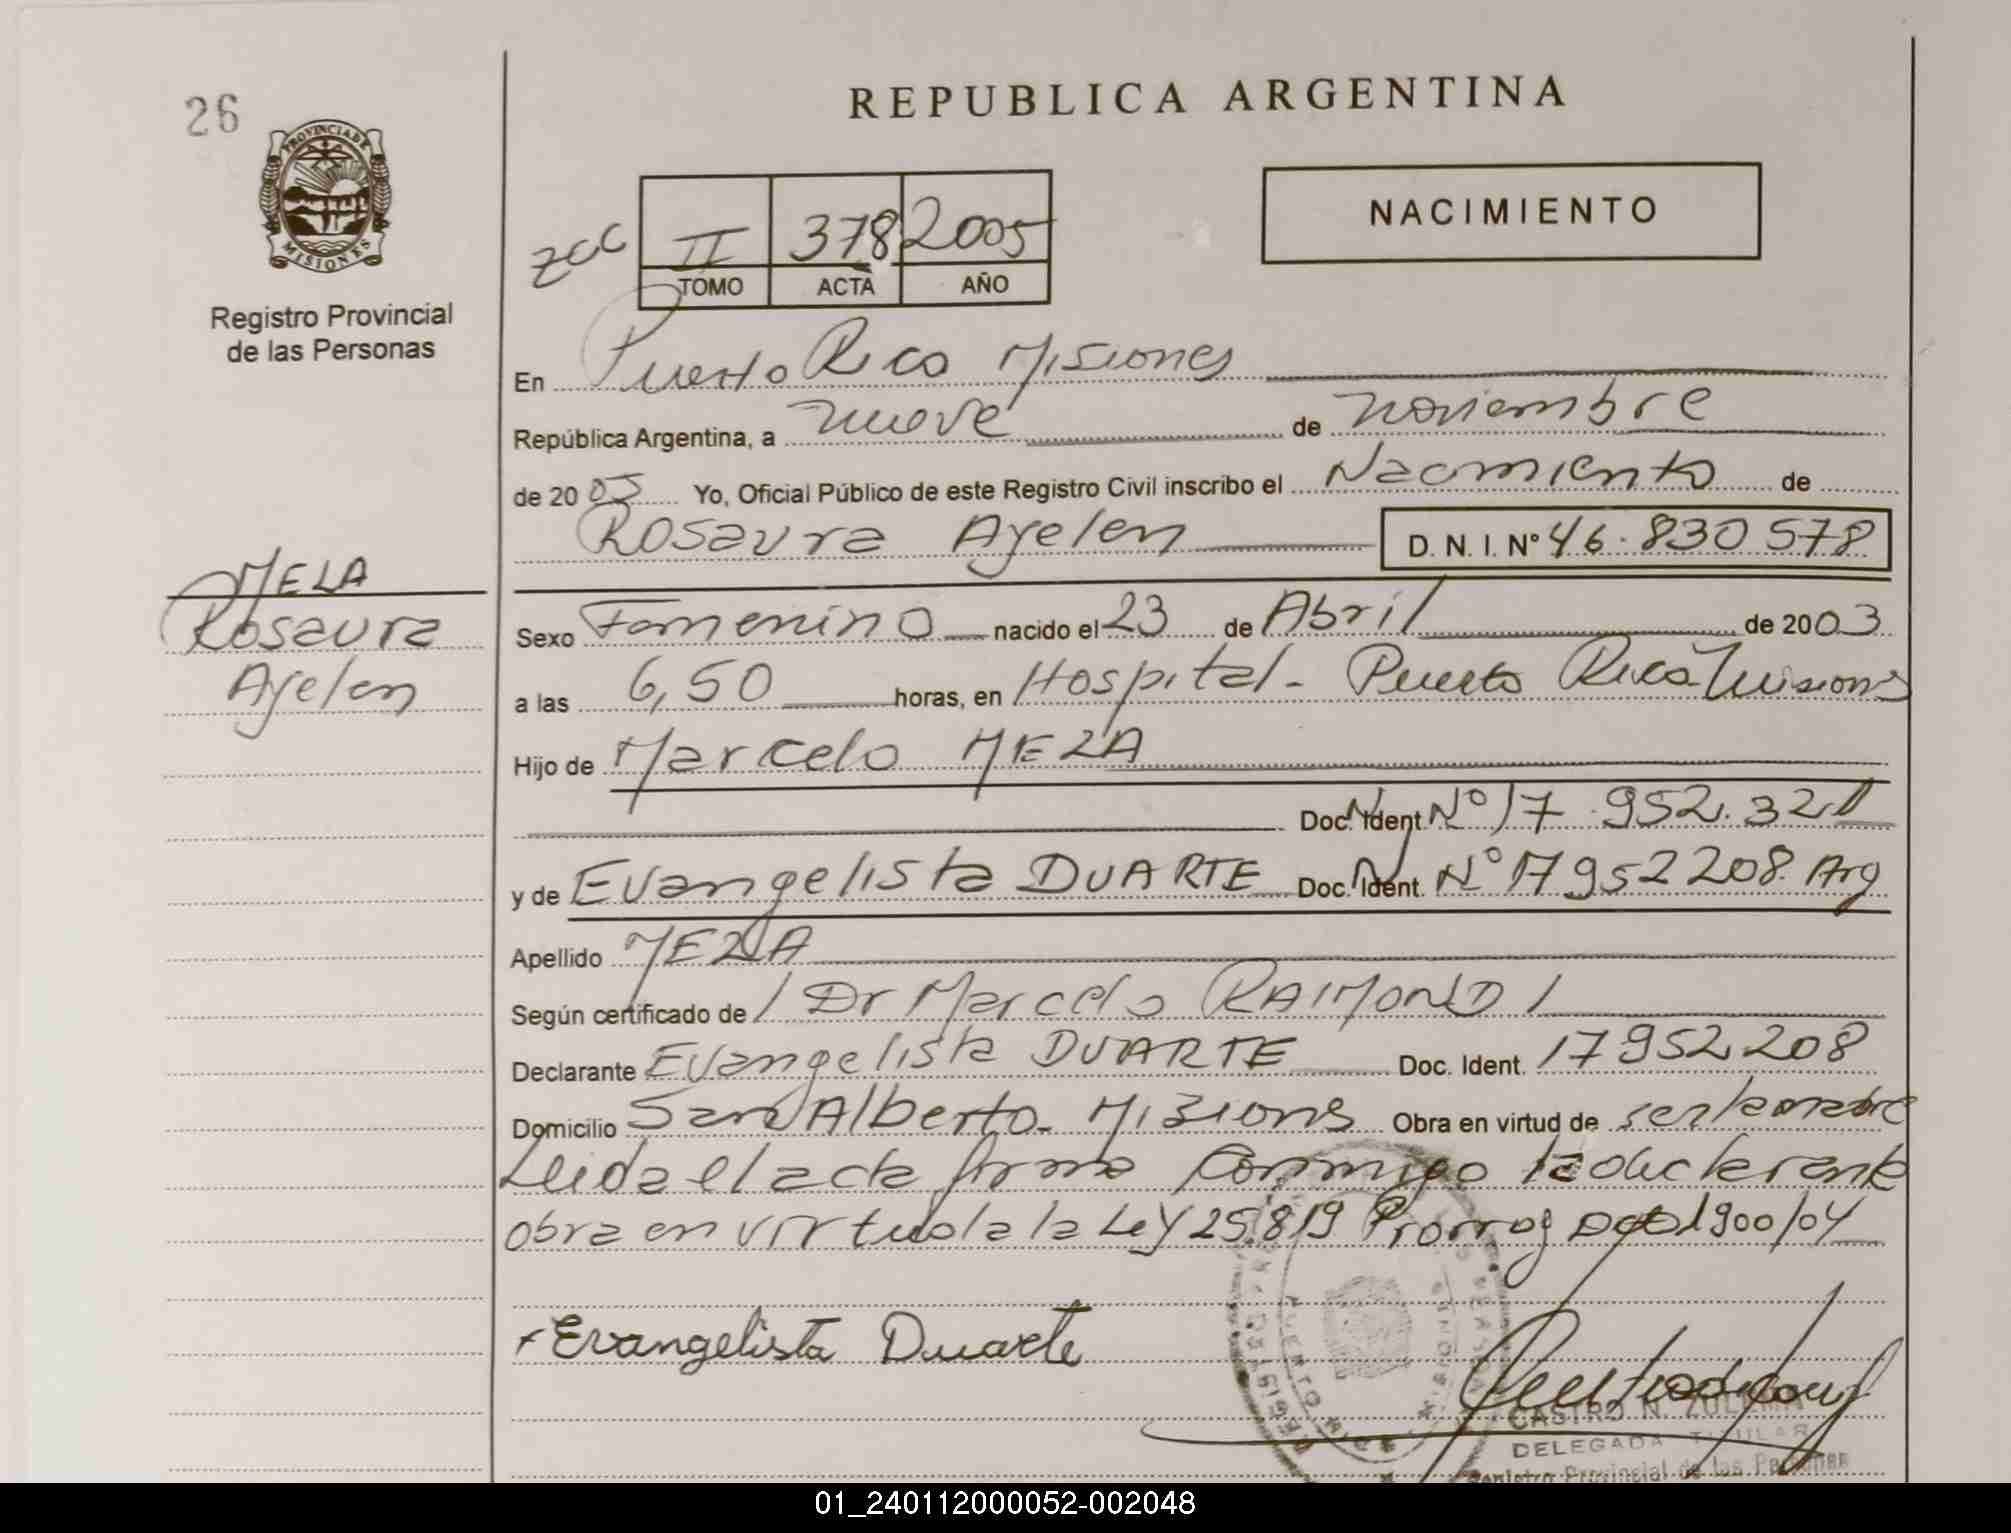 REPUBLICA ARGENTINA
26
PROVINCIA DE
MISIONES
Registro Provincial
de las Personas
NACIMIENTO
zcc II 378 2005
TOMO ACTA AÑO
En Puerto Rico Misiones
República Argentina, a nueve de noviembre
de 2005 Yo, Oficial Público de este Registro Civil inscribo el Nacimiento de
Rosaura Ayelen D. N. I. Nº 46.830578
MEZA
Rosaura
Ayelen
Sexo Femenino nacido el 23 de Abril de 2003
a las 6,50 horas, en Hospital - Puerto Rico Misiones
Hijo de Marcelo MEZA
Doc. Ident. Nº 17.952.321
y de Evangelista DUARTE Doc. Ident. Nº 17952208 Arg
Apellido MEZA
Según certificado de Dr Marcelo RAIMONDI
Declarante Evangelista DUARTE Doc. Ident. 17952208
Domicilio San Alberto - Misiones Obra en virtud de ser la madre
Leida el acta firma conmigo la declarante
obra en virtud a la Ley 25819 Prorrog Dcto 1900/04
Evangelista Duarte
CASTRO N. ZULEMA
DELEGADA TITULAR
Registro Provincial de las Personas
01_240112000052-002048